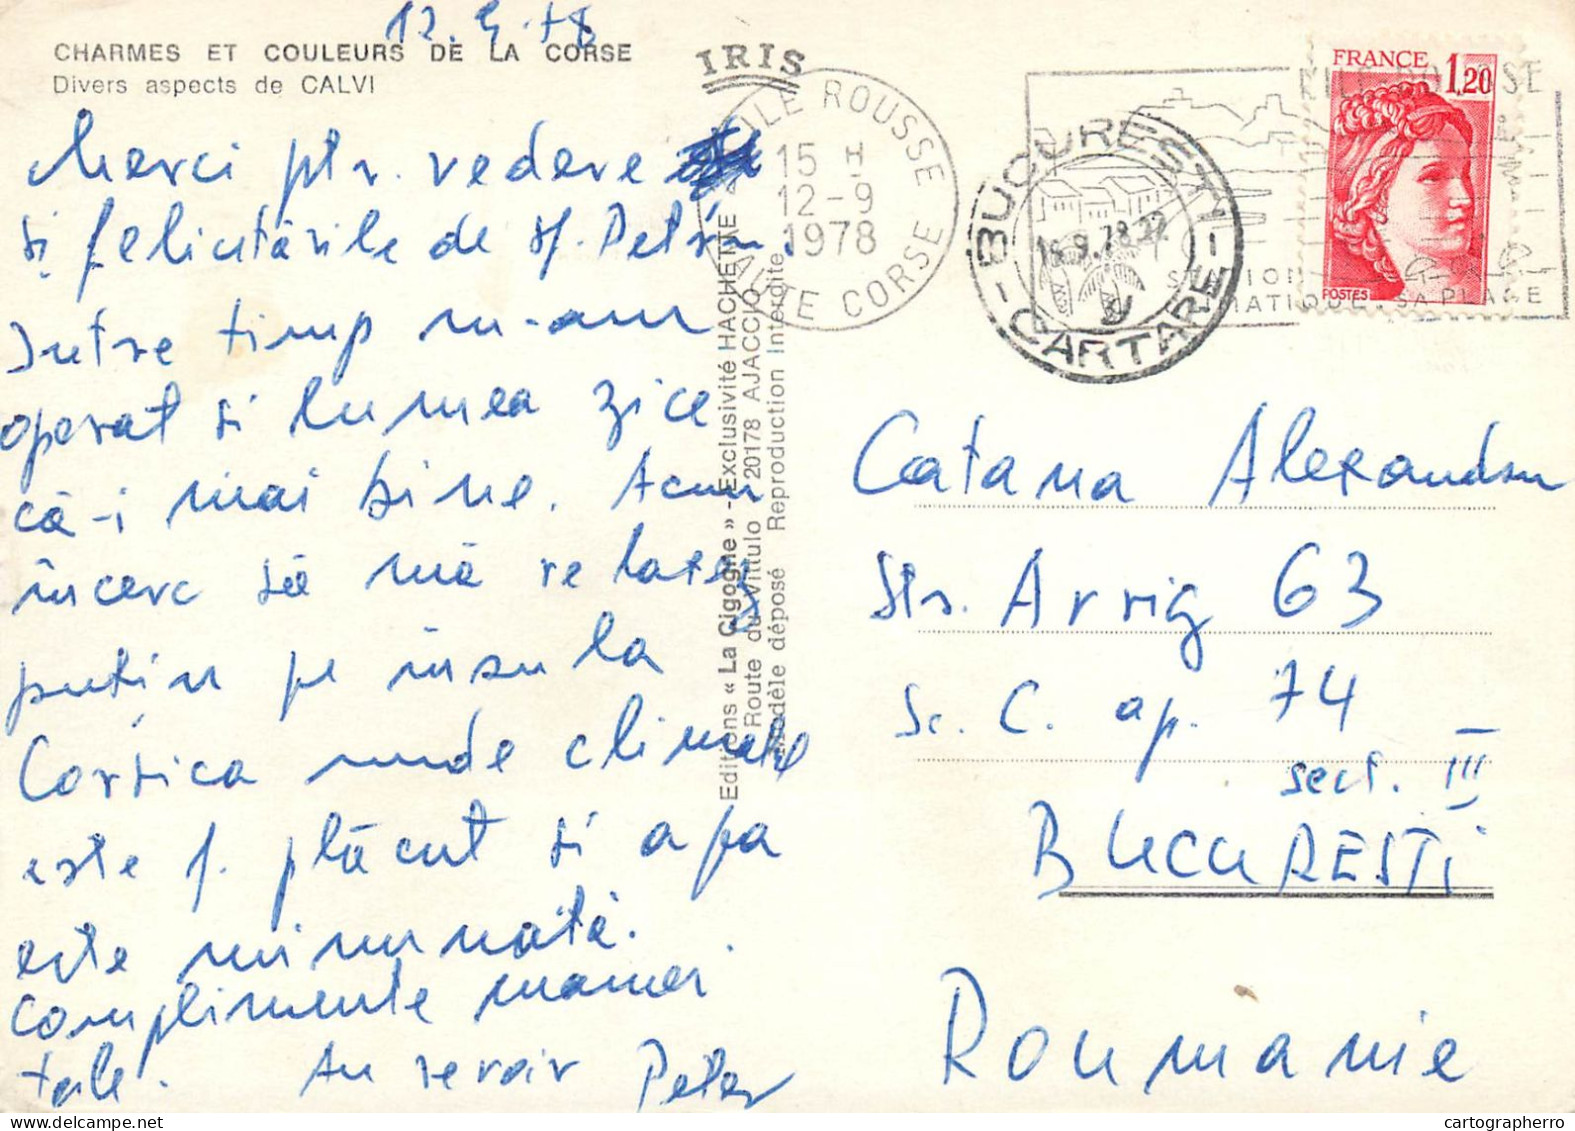 12.9.78
CHARMES ET COULEURS DE LA CORSE
Divers aspects de CALVI
IRIS
Merci ptr. vedere
si felicitările de Sf. Petru.
Intre timp m-am
operat si lumea zice
că-i mai bine. Acum
incerc să mă relaxez
putin pe insula
Corsica unde climatul
este f. plăcut si apa
este minunată.
complimente mamei
tale. Au revoir Peter
Editions « La Cigogne » - Exclusivité HACHETTE
Route du Vittulo 20178 AJACCIO
Modèle déposé Reproduction Interdite
ILE ROUSSE
15 H
12-9
1978
HAUTE CORSE
BUCURESTI
16.9.78.22
CARTARE
FRANCE 1,20
POSTES
SA PLAGE
Catana Alexandru
Str. Arrig 63
Sc. C. ap. 74
sect. III
BUCURESTI
Roumanie
cartographerro